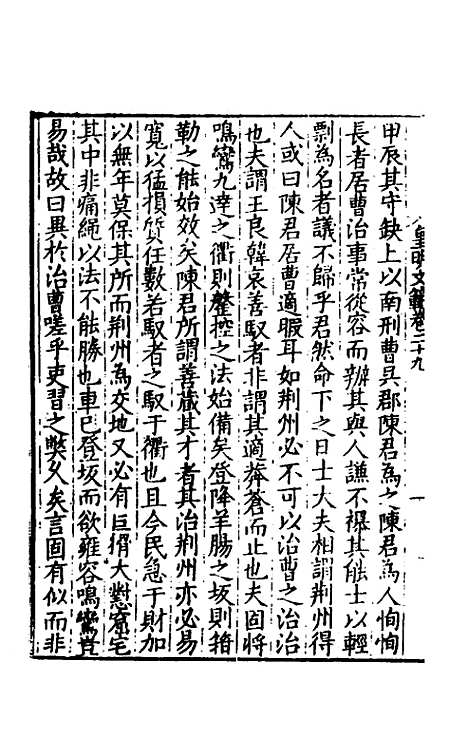 皇明文範卷二十九
一
甲辰其守缺上以南刑曹吳郡陳君為之陳君為人恂恂
長者居曹治事常從容而辦其與人謙不襮其能士以輕
剽為名者議不歸乎君然命下之日士大夫相謂荆州得
人或曰陳君居曹適暇耳如荆州必不可以治曹之治治
也夫謂王良韓哀善馭者非謂其適莽蒼而止也夫固將
鳴鸞九逵之衢則罄控之法始備矣登降羊腸之坂則籋
勒之能始效矣陳君所謂善蔵其才者其治荆州亦必易
寬以猛損質任數若馭者之馭于衢也且今民急于財加
以無年莫保其所而荆州為交地又必有巨猾大憝窟宅
其中非痛繩以法不能勝也車已登坂而欲雍容鳴鸞豈
易哉故曰異於治曹嗟乎吏習之獘久矣言固有似而非